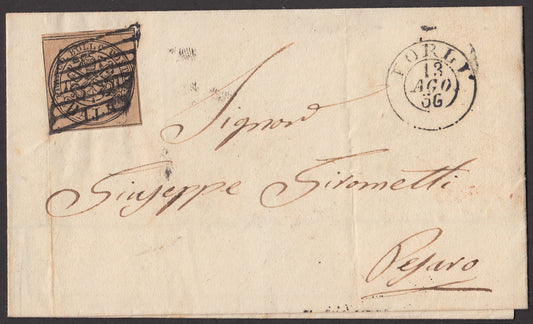 BOLLO
FORLI
13
AGO
56
Signore
Giuseppe Gisometti
Pesaro